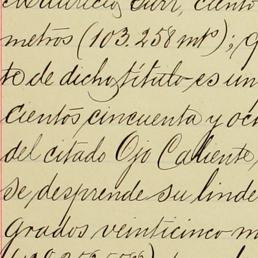 Mauricio Gurr, ciento
metros (103.258 mts); q
to de dicho título es un
cientos cincuenta y oc
del citado Ojo Caliente,
se desprende su linde
grados veinticinco m